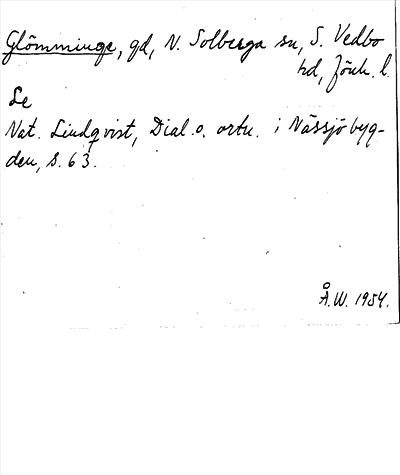 Glömminge, gd, N. Solberga sn, S. Vedbo
hd, Jönk. l.
Se
Nat. Lindqvist, Dial. o. ortn. i Nässjöbyg-
den, s. 63.
Å.W. 1954.